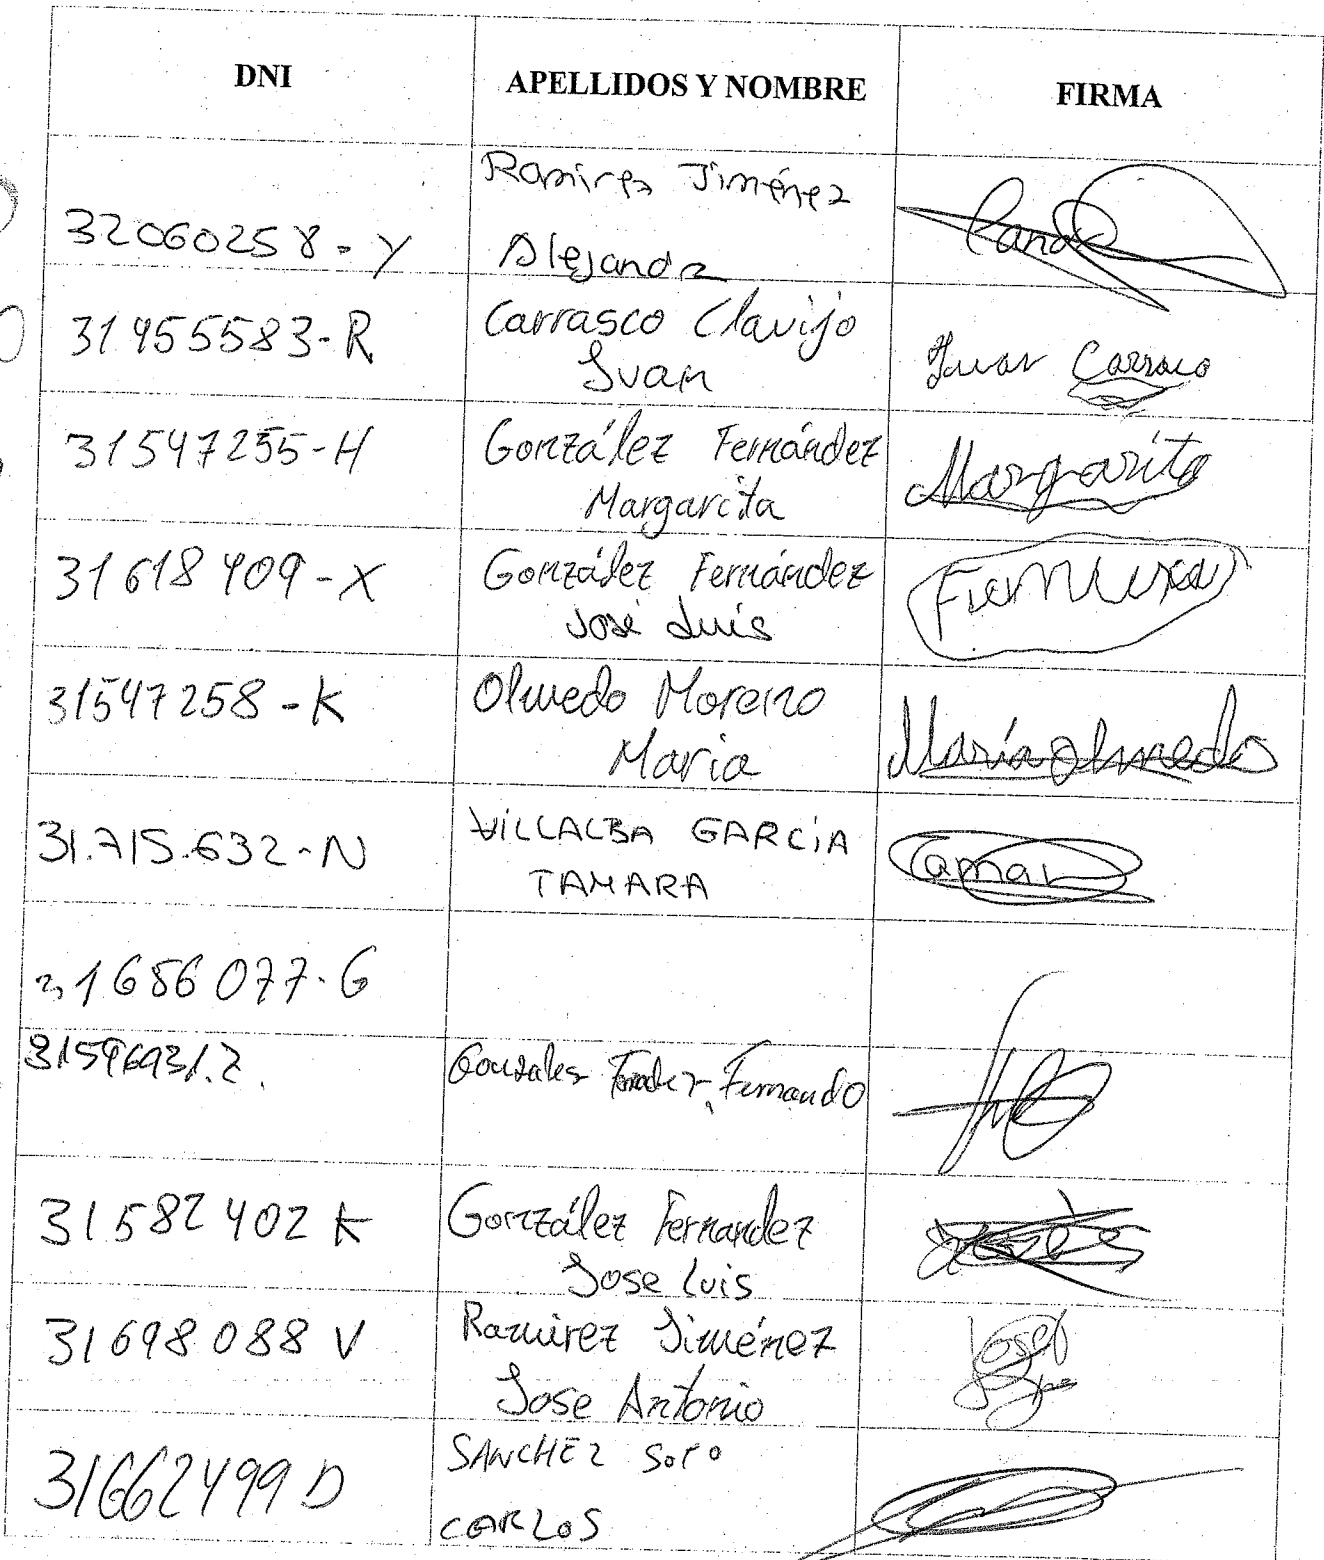 DNI APELLIDOS Y NOMBRE FIRMA
Ramirez Jiménez
32060258-Y Alejandra
31955583-R Carrasco Clavijo
Juan Juan Carrasco
31547255-H González Fernández Margarita
Margarita
31618409-X González Fernández
José Luis
31547258-K Olmedo Moreno
Maria María Olmedo
31.715.632-N VILLALBA GARCÍA
TAMARA Tamar
31656077-G
González Fernando
31582402 K González Fernandez
Jose Luis
31698088 V Ramirez Jiménez
Jose Antonio
31662499 D SANCHEZ SOTO
CARLOS